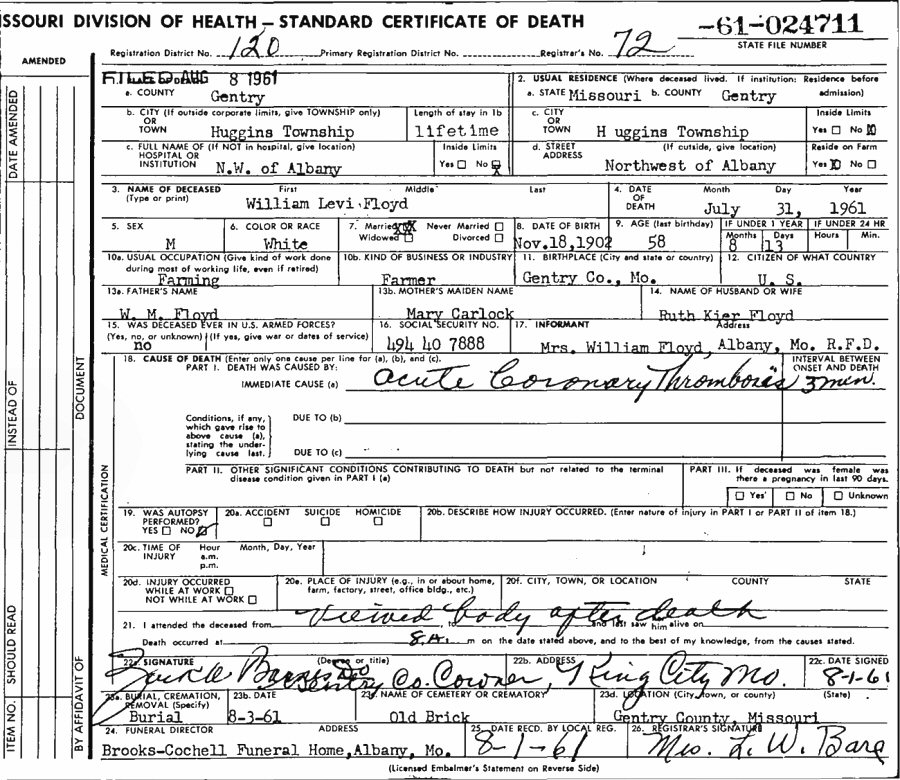 SSOURI DIVISION OF HEALTH — STANDARD CERTIFICATE OF DEATH
-61-024711
STATE FILE NUMBER
AMENDED
Registration District No. 120 Primary Registration District No. Registrar's No. 72
FILED AUG 8 1961
a. COUNTY
Gentry
2. USUAL RESIDENCE (Where deceased lived. If institution: Residence before admission)
a. STATE Missouri b. COUNTY Gentry
b. CITY (If outside corporate limits, give TOWNSHIP only)
OR
TOWN Huggins Township
Length of stay in 1b
lifetime
c. CITY
OR
TOWN H uggins Township
Inside Limits
Yes No X
c. FULL NAME OF (If NOT in hospital, give location)
HOSPITAL OR
INSTITUTION N.W. of Albany
Inside Limits
Yes No X
d. STREET (If outside, give location)
ADDRESS Northwest of Albany
Reside on Farm
Yes X No
3. NAME OF DECEASED First Middle Last
(Type or print) William Levi Floyd
4. DATE Month Day Year
OF
DEATH July 31, 1961
5. SEX
M
6. COLOR OR RACE
White
7. Married XX Never Married
Widowed Divorced
8. DATE OF BIRTH
Nov.18,1902
9. AGE (last birthday)
58
IF UNDER 1 YEAR
Months Days
8 13
IF UNDER 24 HR
Hours Min.
10a. USUAL OCCUPATION (Give kind of work done
during most of working life, even if retired)
Farming
10b. KIND OF BUSINESS OR INDUSTRY
Farmer
11. BIRTHPLACE (City and state or country)
Gentry Co., Mo.
12. CITIZEN OF WHAT COUNTRY
U. S.
13a. FATHER'S NAME
W. M. Floyd
13b. MOTHER'S MAIDEN NAME
Mary Carlock
14. NAME OF HUSBAND OR WIFE
Ruth Kier Floyd
15. WAS DECEASED EVER IN U.S. ARMED FORCES?
(Yes, no, or unknown) (If yes, give war or dates of service)
no
16. SOCIAL SECURITY NO.
494 40 7888
17. INFORMANT Address
Mrs. William Floyd, Albany, Mo. R.F.D.
18. CAUSE OF DEATH (Enter only one cause per line for (a), (b), and (c).
PART I. DEATH WAS CAUSED BY:
IMMEDIATE CAUSE (a) Acute Coronary Thrombosis
INTERVAL BETWEEN
ONSET AND DEATH
3 min.
Conditions, if any,
which gave rise to
above cause (a),
stating the under-
lying cause last.
DUE TO (b)
DUE TO (c)
PART II. OTHER SIGNIFICANT CONDITIONS CONTRIBUTING TO DEATH but not related to the terminal
disease condition given in PART I (a)
PART III. If deceased was female was
there a pregnancy in last 90 days.
Yes No Unknown
19. WAS AUTOPSY
PERFORMED?
YES NO
20a. ACCIDENT SUICIDE HOMICIDE
20b. DESCRIBE HOW INJURY OCCURRED. (Enter nature of injury in PART I or PART II of item 18.)
20c. TIME OF Hour Month, Day, Year
INJURY a.m.
p.m.
20d. INJURY OCCURRED
WHILE AT WORK
NOT WHILE AT WORK
20e. PLACE OF INJURY (e.g., in or about home,
farm, factory, street, office bldg., etc.)
20f. CITY, TOWN, OR LOCATION COUNTY STATE
Viewed body after death
21. I attended the deceased from and last saw him alive on
Death occurred at 8 A. m on the date stated above, and to the best of my knowledge, from the causes stated.
22a. SIGNATURE (Degree or title)
Gentry Co. Coroner,
22b. ADDRESS
King City Mo.
22c. DATE SIGNED
8-1-61
23a. BURIAL, CREMATION,
REMOVAL (Specify)
Burial
23b. DATE
8-3-61
23c. NAME OF CEMETERY OR CREMATORY
Old Brick
23d. LOCATION (City, town, or county) (State)
Gentry County, Missouri
24. FUNERAL DIRECTOR ADDRESS
Brooks-Cochell Funeral Home, Albany, Mo.
25. DATE RECD. BY LOCAL REG.
8-1-61
26. REGISTRAR'S SIGNATURE
Mrs. L. W. Bare
(Licensed Embalmer's Statement on Reverse Side)
DATE AMENDED
INSTEAD OF
DOCUMENT
MEDICAL CERTIFICATION
SHOULD READ
ITEM NO.
BY AFFIDAVIT OF